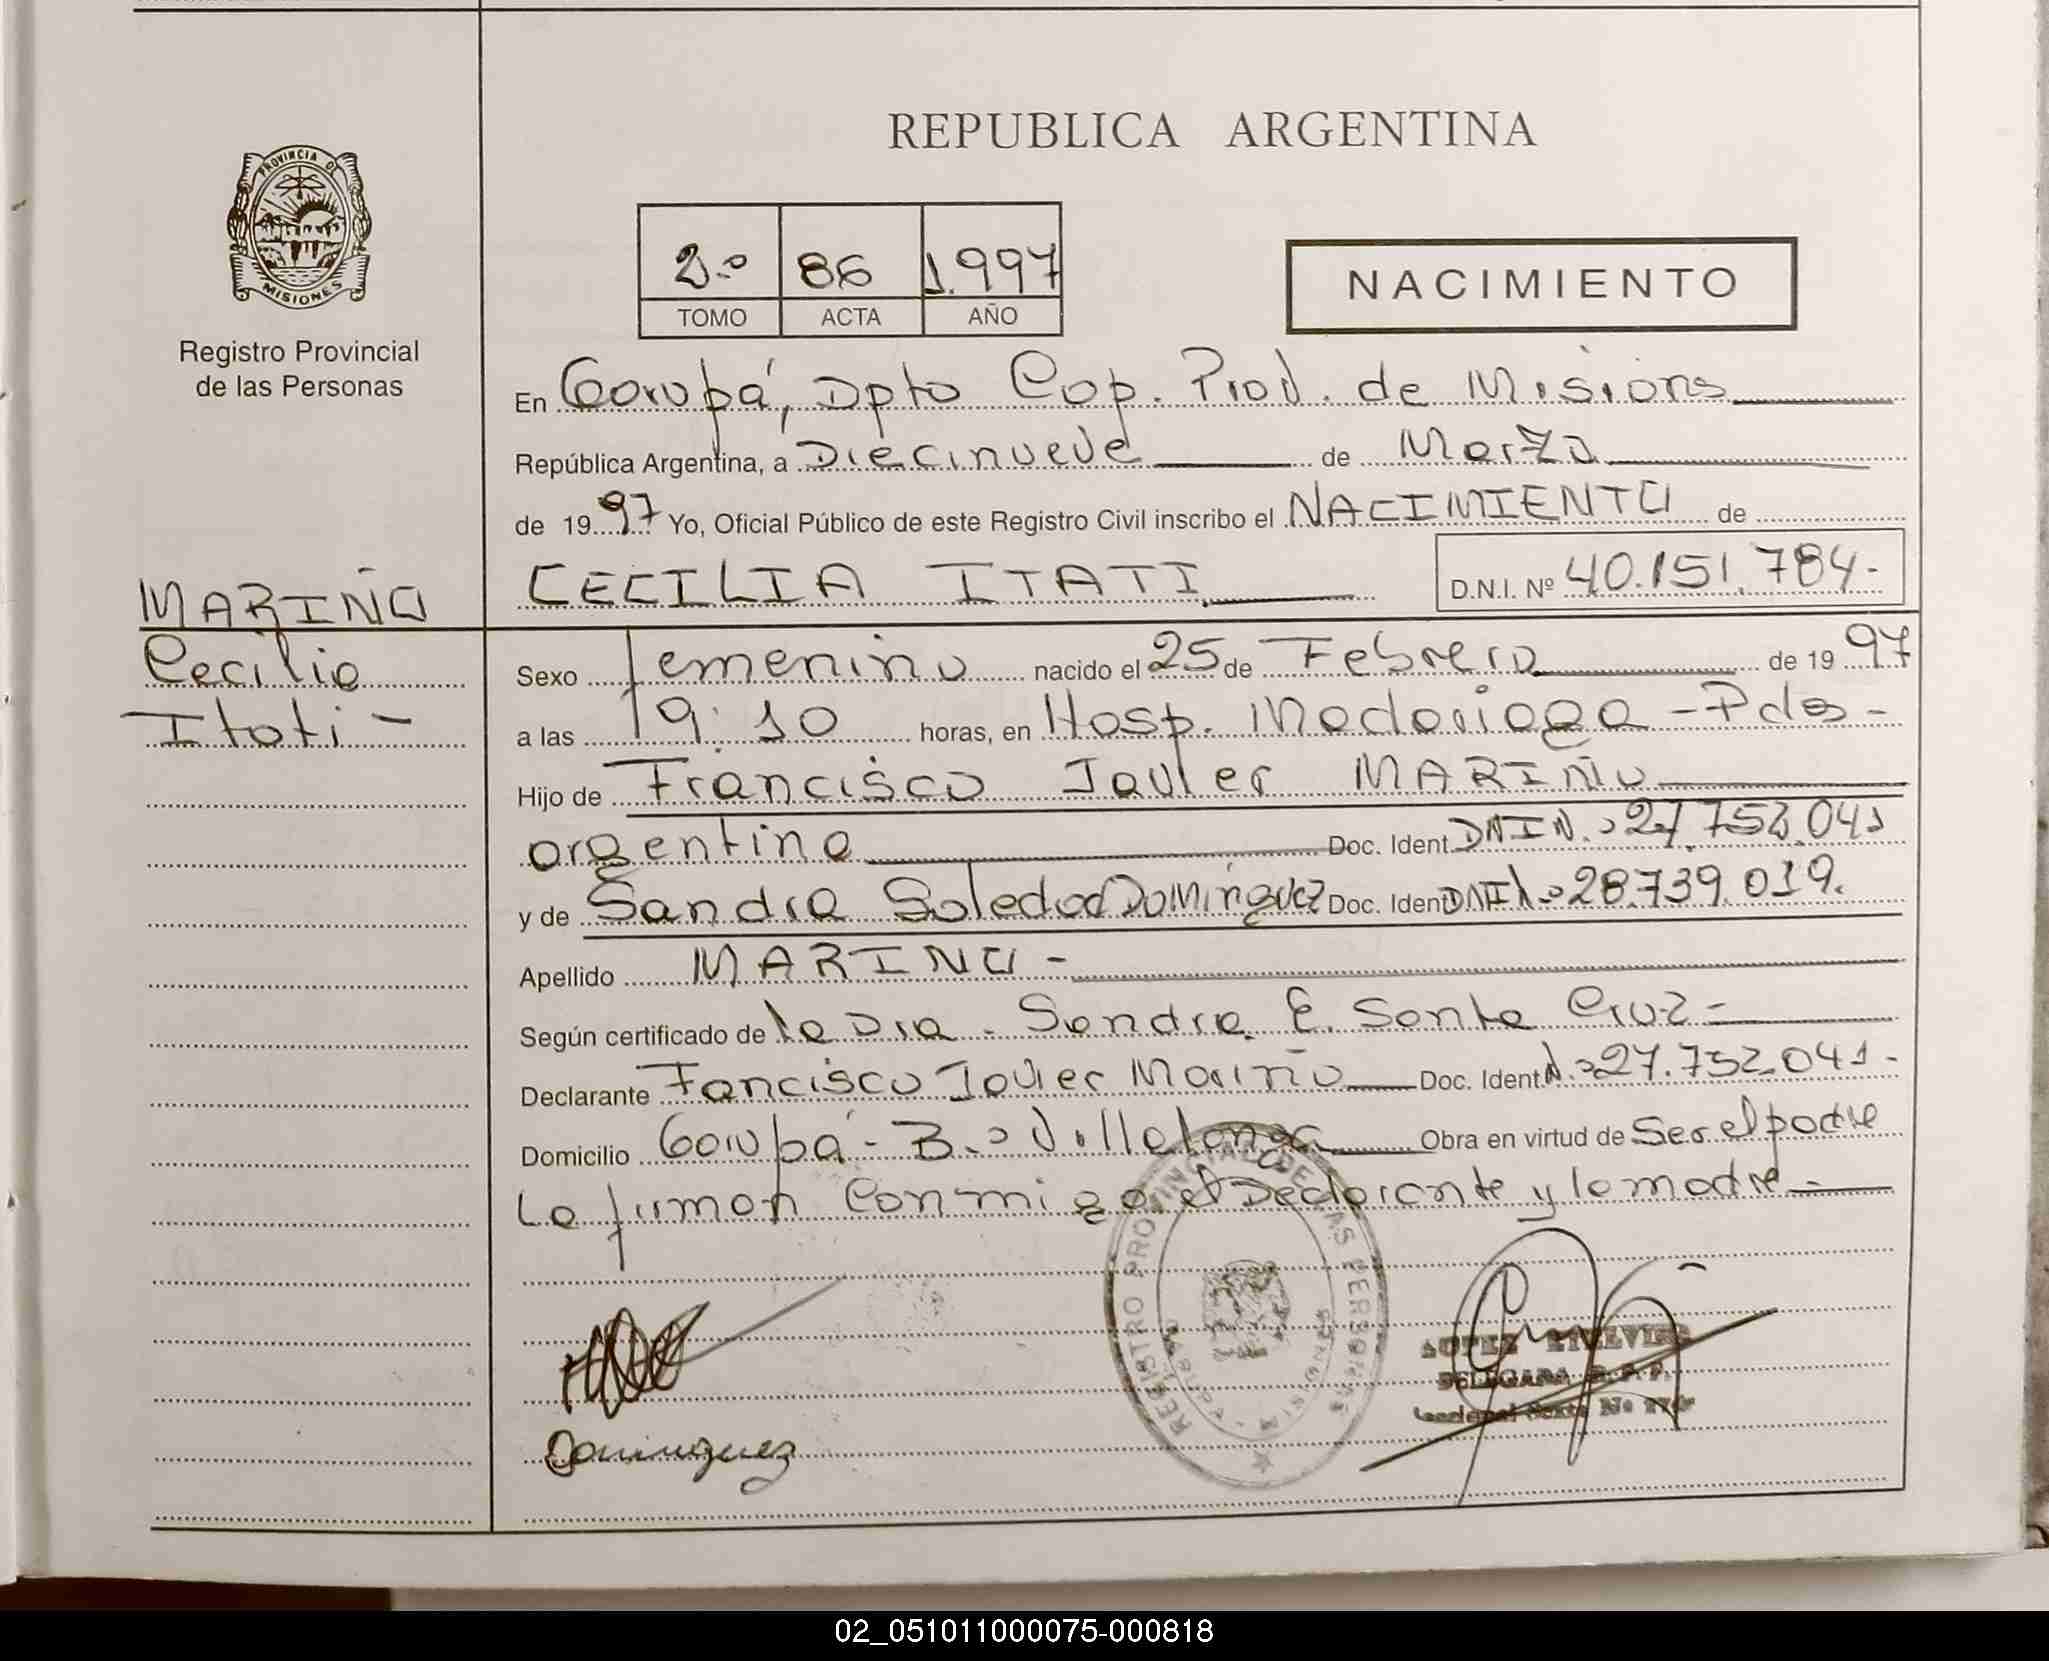 REPUBLICA ARGENTINA
PROVINCIA DE
MISIONES
Registro Provincial
de las Personas
2.º 86 1.997
TOMO ACTA AÑO
NACIMIENTO
En Garupá, Dpto Cap. Prov. de Misions
República Argentina, a Diecinueve de Marzo
de 1997 Yo, Oficial Público de este Registro Civil inscribo el NACIMIENTO de
CECILIA ITATI D.N.I. Nº 40.151.784.-
MARIÑO
Cecilia
Itati -
Sexo femenino nacido el 25 de Febrero de 1997
a las 19:10 horas, en Hosp. Madariaga - Pdas -
Hijo de Francisco Javier MARIÑO
argentino Doc. Ident. DNI N.º 27.752.041
y de Sandra Soledad Dominguez Doc. Ident. DNI N.º 28.739.019.
Apellido MARINO -
Según certificado de la Dra. Sandra E. Santa Cruz -
Declarante Francisco Javier Mariño Doc. Ident. N.º 27.752.041 -
Domicilio Garupá - B.º Villalonga Obra en virtud de Ser el padre
La firman Conmigo el Declarante y la madre -
REGISTRO PROVINCIAL DE LAS PERSONAS
GARUPA - MISIONES
Dominguez
LOPEZ
DELEGADA R.P.P.
02_051011000075-000818